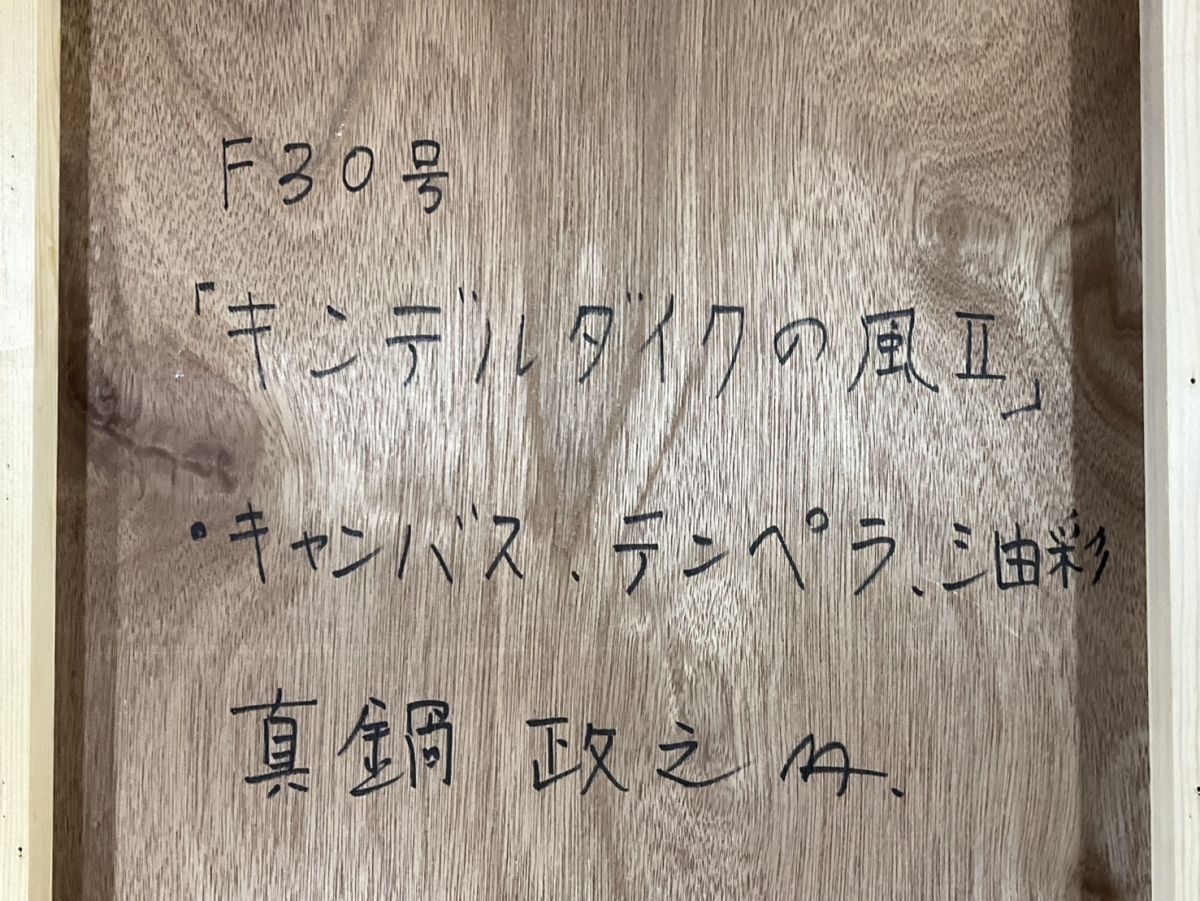 F30号
「キンデルダイクの風Ⅱ」
・キャンバス、テンペラ、油彩
真鍋 政之